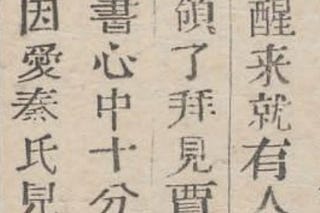 醒来就有人
領了拜見賈
書心中十分
因愛秦氏見